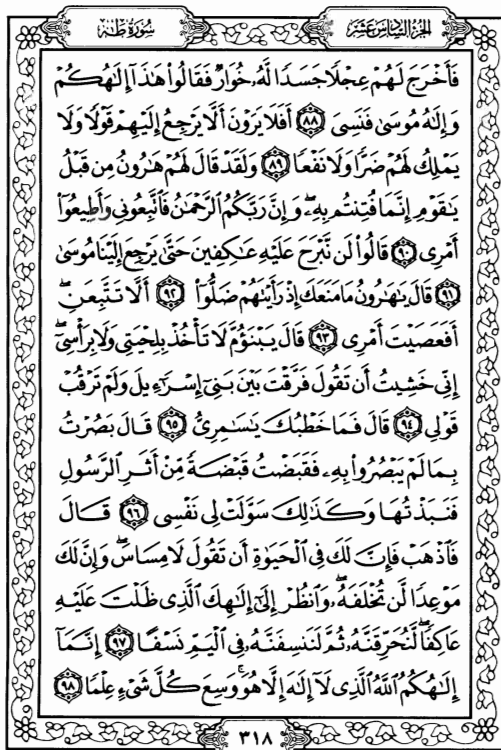 سُورَةُ طه
الجُزْءُ السَّادِسَ عَشَرَ
فَأَخْرَجَ لَهُمْ عِجْلًا جَسَدًا لَّهُۥ خُوَارٌ فَقَالُوا۟ هَٰذَآ إِلَٰهُكُمْ
وَإِلَٰهُ مُوسَىٰ فَنَسِىَ ﴿٨٨﴾ أَفَلَا يَرَوْنَ أَلَّا يَرْجِعُ إِلَيْهِمْ قَوْلًا وَلَا
يَمْلِكُ لَهُمْ ضَرًّا وَلَا نَفْعًا ﴿٨٩﴾ وَلَقَدْ قَالَ لَهُمْ هَٰرُونُ مِن قَبْلُ
يَٰقَوْمِ إِنَّمَا فُتِنتُم بِهِۦ ۖ وَإِنَّ رَبَّكُمُ ٱلرَّحْمَٰنُ فَٱتَّبِعُونِى وَأَطِيعُوٓا۟
أَمْرِى ﴿٩٠﴾ قَالُوا۟ لَن نَّبْرَحَ عَلَيْهِ عَٰكِفِينَ حَتَّىٰ يَرْجِعَ إِلَيْنَا مُوسَىٰ
﴿٩١﴾ قَالَ يَٰهَٰرُونُ مَا مَنَعَكَ إِذْ رَأَيْتَهُمْ ضَلُّوٓا۟ ﴿٩٢﴾ أَلَّا تَتَّبِعَنِ ۖ
أَفَعَصَيْتَ أَمْرِى ﴿٩٣﴾ قَالَ يَبْنَؤُمَّ لَا تَأْخُذْ بِلِحْيَتِى وَلَا بِرَأْسِىٓ ۖ
إِنِّى خَشِيتُ أَن تَقُولَ فَرَّقْتَ بَيْنَ بَنِىٓ إِسْرَٰٓءِيلَ وَلَمْ تَرْقُبْ
قَوْلِى ﴿٩٤﴾ قَالَ فَمَا خَطْبُكَ يَٰسَٰمِرِىُّ ﴿٩٥﴾ قَالَ بَصُرْتُ
بِمَا لَمْ يَبْصُرُوا۟ بِهِۦ فَقَبَضْتُ قَبْضَةً مِّنْ أَثَرِ ٱلرَّسُولِ
فَنَبَذْتُهَا وَكَذَٰلِكَ سَوَّلَتْ لِى نَفْسِى ﴿٩٦﴾ قَالَ
فَٱذْهَبْ فَإِنَّ لَكَ فِى ٱلْحَيَوٰةِ أَن تَقُولَ لَا مِسَاسَ ۖ وَإِنَّ لَكَ
مَوْعِدًا لَّن تُخْلَفَهُۥ ۖ وَٱنظُرْ إِلَىٰٓ إِلَٰهِكَ ٱلَّذِى ظَلْتَ عَلَيْهِ
عَاكِفًا ۖ لَّنُحَرِّقَنَّهُۥ ثُمَّ لَنَنسِفَنَّهُۥ فِى ٱلْيَمِّ نَسْفًا ﴿٩٧﴾ إِنَّمَآ
إِلَٰهُكُمُ ٱللَّهُ ٱلَّذِى لَآ إِلَٰهَ إِلَّا هُوَ ۚ وَسِعَ كُلَّ شَىْءٍ عِلْمًا ﴿٩٨﴾
٣١٨